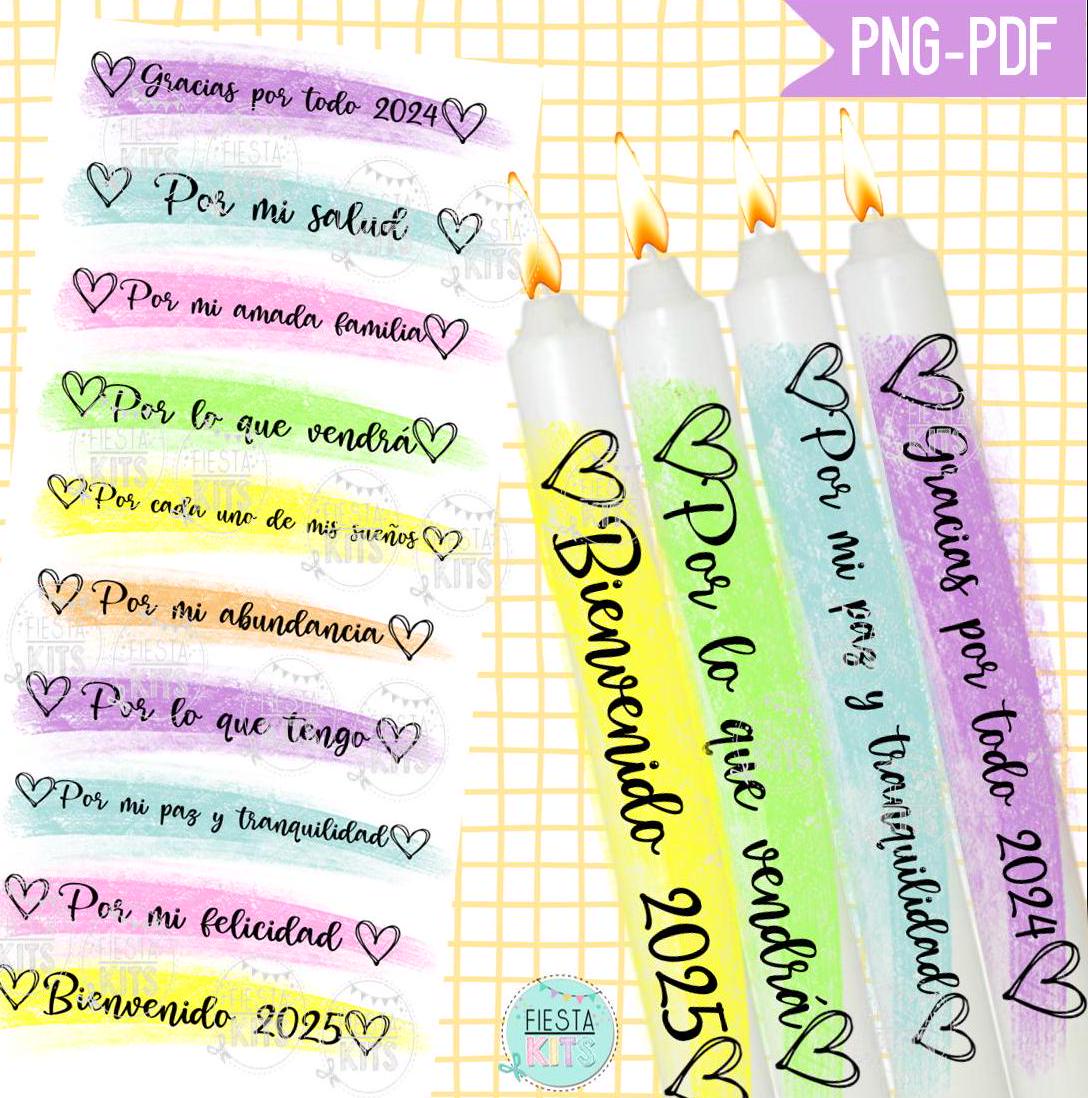 PNG-PDF
Gracias por todo 2024
Por mi salud
Por mi amada familia
Por lo que vendrá
Por cada uno de mis sueños
Por mi abundancia
Por lo que tengo
Por mi paz y tranquilidad
Por mi felicidad
Bienvenido 2025
Bienvenido 2025
Por lo que vendrá
Por mi paz y tranquilidad
Gracias por todo 2024
FIESTA
KITS